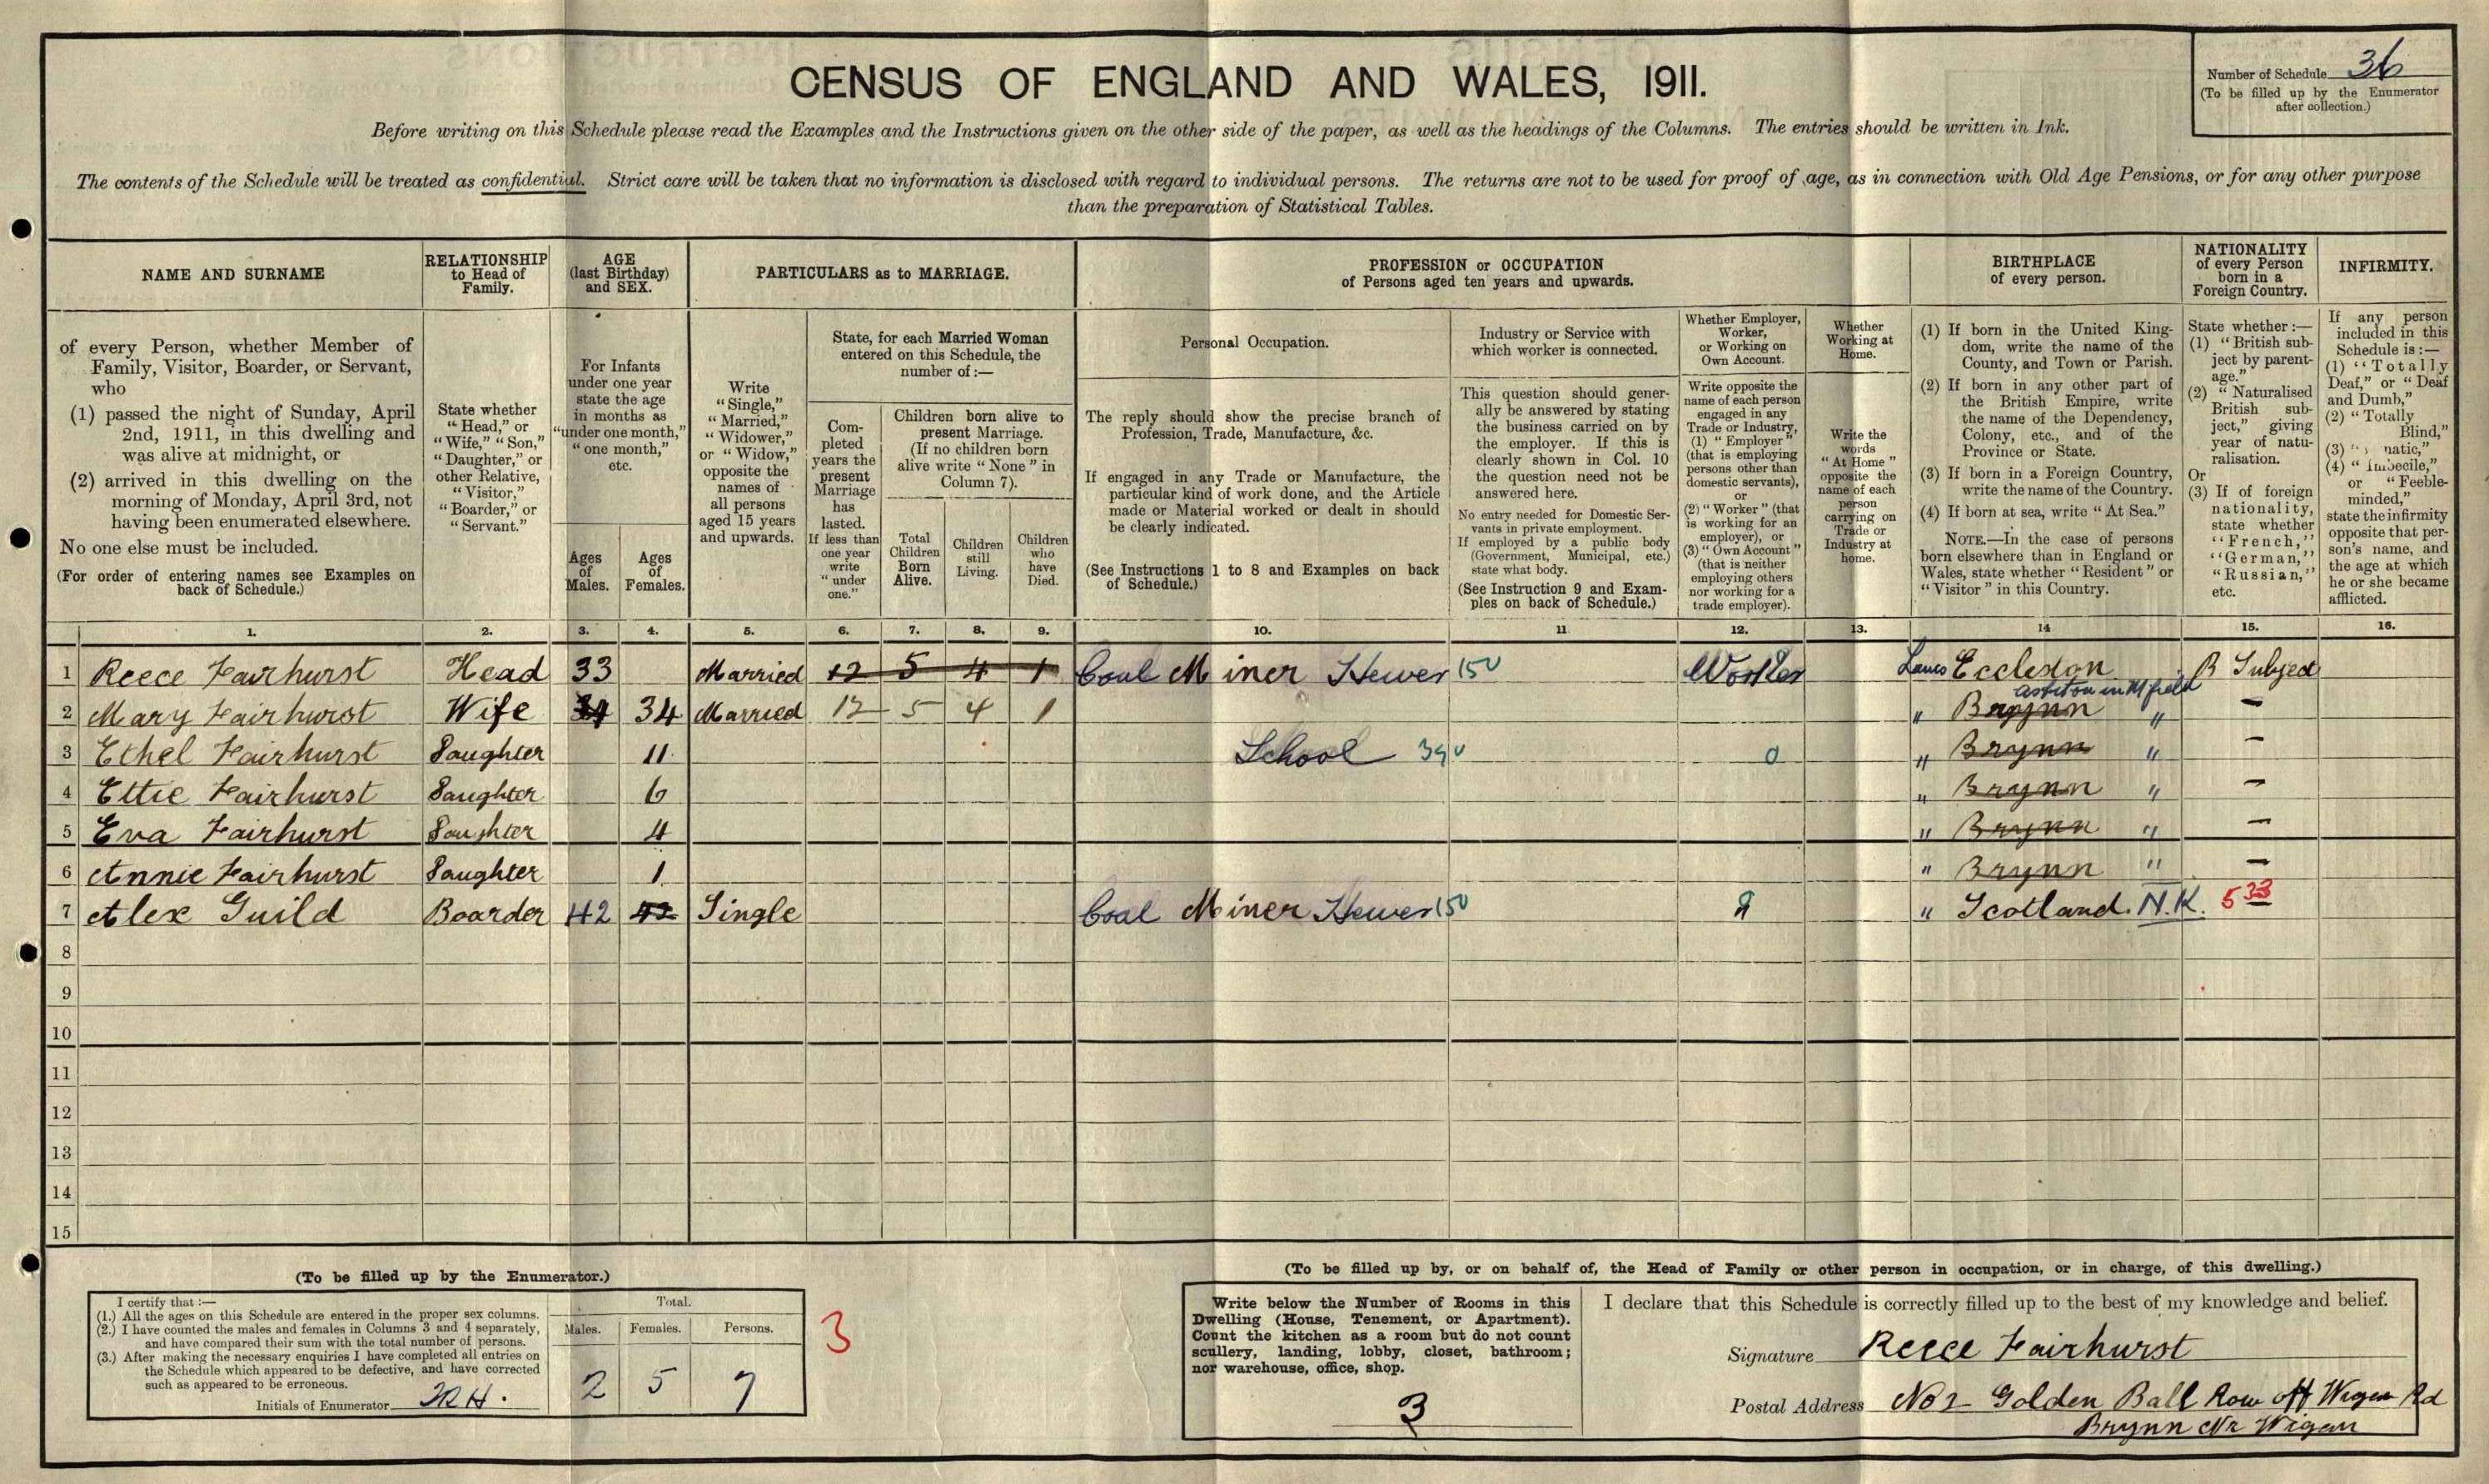 CENSUS OF ENGLAND AND WALES, 1911.
Number of Schedule 36
(To be filled up by the Enumerator
after collection.)
Before writing on this Schedule please read the Examples and the Instructions given on the other side of the paper, as well as the headings of the Columns. The entries should be written in Ink.
The contents of the Schedule will be treated as confidential. Strict care will be taken that no information is disclosed with regard to individual persons. The returns are not to be used for proof of age, as in connection with Old Age Pensions, or for any other purpose
than the preparation of Statistical Tables.
NAME AND SURNAME
of every Person, whether Member of
Family, Visitor, Boarder, or Servant,
who
(1) passed the night of Sunday, April
2nd, 1911, in this dwelling and
was alive at midnight, or
(2) arrived in this dwelling on the
morning of Monday, April 3rd, not
having been enumerated elsewhere.
No one else must be included.
(For order of entering names see Examples on
back of Schedule.)
RELATIONSHIP
to Head of
Family.
State whether
"Head," or
"Wife," "Son,"
"Daughter," or
other Relative,
"Visitor,"
"Boarder," or
"Servant."
AGE
(last Birthday)
and SEX.
For Infants
under one year
state the age
in months as
"under one month,"
"one month,"
etc.
Ages
of
Males.
Ages
of
Females.
PARTICULARS as to MARRIAGE.
Write
"Single,"
"Married,"
"Widower,"
or "Widow,"
opposite the
names of
all persons
aged 15 years
and upwards.
State, for each Married Woman
entered on this Schedule, the
number of:—
Com-
pleted
years the
present
Marriage
has
lasted.
If less than
one year
write
"under
one."
Children born alive to
present Marriage.
(If no children born
alive write "None" in
Column 7).
Total
Children
Born
Alive.
Children
still
Living.
Children
who
have
Died.
PROFESSION or OCCUPATION
of Persons aged ten years and upwards.
Personal Occupation.
The reply should show the precise branch of
Profession, Trade, Manufacture, &c.
If engaged in any Trade or Manufacture, the
particular kind of work done, and the Article
made or Material worked or dealt in should
be clearly indicated.
(See Instructions 1 to 8 and Examples on back
of Schedule.)
Industry or Service with
which worker is connected.
This question should gener-
ally be answered by stating
the business carried on by
the employer. If this is
clearly shown in Col. 10
the question need not be
answered here.
No entry needed for Domestic Ser-
vants in private employment.
If employed by a public body
(Government, Municipal, etc.)
state what body.
(See Instruction 9 and Exam-
ples on back of Schedule.)
Whether Employer,
Worker,
or Working on
Own Account.
Write opposite the
name of each person
engaged in any
Trade or Industry,
(1) "Employer"
(that is employing
persons other than
domestic servants),
or
(2) "Worker" (that
is working for an
employer), or
(3) "Own Account"
(that is neither
employing others
nor working for a
trade employer).
Whether
Working at
Home.
Write the
words
"At Home"
opposite the
name of each
person
carrying on
Trade or
Industry at
home.
BIRTHPLACE
of every person.
(1) If born in the United King-
dom, write the name of the
County, and Town or Parish.
(2) If born in any other part of
the British Empire, write
the name of the Dependency,
Colony, etc., and of the
Province or State.
(3) If born in a Foreign Country,
write the name of the Country.
(4) If born at sea, write "At Sea."
NOTE.—In the case of persons
born elsewhere than in England or
Wales, state whether "Resident" or
"Visitor" in this Country.
NATIONALITY
of every Person
born in a
Foreign Country.
State whether:—
(1) "British sub-
ject by parent-
age."
(2) "Naturalised
British sub-
ject," giving
year of natu-
ralisation.
Or
(3) If of foreign
nationality,
state whether
"French,"
"German,"
"Russian,"
etc.
INFIRMITY.
If any person
included in this
Schedule is:—
(1) "Totally
Deaf," or "Deaf
and Dumb,"
(2) "Totally
Blind,"
(3) " natic,"
(4) "Imbecile,"
or "Feeble-
minded,"
state the infirmity
opposite that per-
son's name, and
the age at which
he or she became
afflicted.
1. 2. 3. 4. 5. 6. 7. 8. 9. 10. 11 12. 13. 14 15. 16.
1 Reece Fairhurst Head 33 Married 12 5 4 1 Coal Miner Hewer 150 Worker Lancs Eccleston B Subject
Ashton in M field
2 Mary Fairhurst Wife 34 34 Married 12 5 4 1 " Brynn " —
3 Ethel Fairhurst Daughter 11 School 390 0 " Brynn " —
4 Ettie Fairhurst Daughter 6 " Brynn " —
5 Eva Fairhurst Daughter 4 " Brynn " —
6 Annie Fairhurst Daughter 1 " Brynn " —
7 Alex Guild Boarder 42 42 Single Coal Miner Hewer 150 " Scotland. N.K. 533
8
9
10
11
12
13
14
15
(To be filled up by the Enumerator.)
I certify that:—
(1.) All the ages on this Schedule are entered in the proper sex columns.
(2.) I have counted the males and females in Columns 3 and 4 separately,
and have compared their sum with the total number of persons.
(3.) After making the necessary enquiries I have completed all entries on
the Schedule which appeared to be defective, and have corrected
such as appeared to be erroneous.
Initials of Enumerator
Total.
Males. Females. Persons.
2 5 7
3
(To be filled up by, or on behalf of, the Head of Family or other person in occupation, or in charge, of this dwelling.)
Write below the Number of Rooms in this
Dwelling (House, Tenement, or Apartment).
Count the kitchen as a room but do not count
scullery, landing, lobby, closet, bathroom;
nor warehouse, office, shop.
3
I declare that this Schedule is correctly filled up to the best of my knowledge and belief.
Signature Reece Fairhurst
Postal Address No 2 Golden Ball Row off Wigan Rd
Brynn Nr Wigan